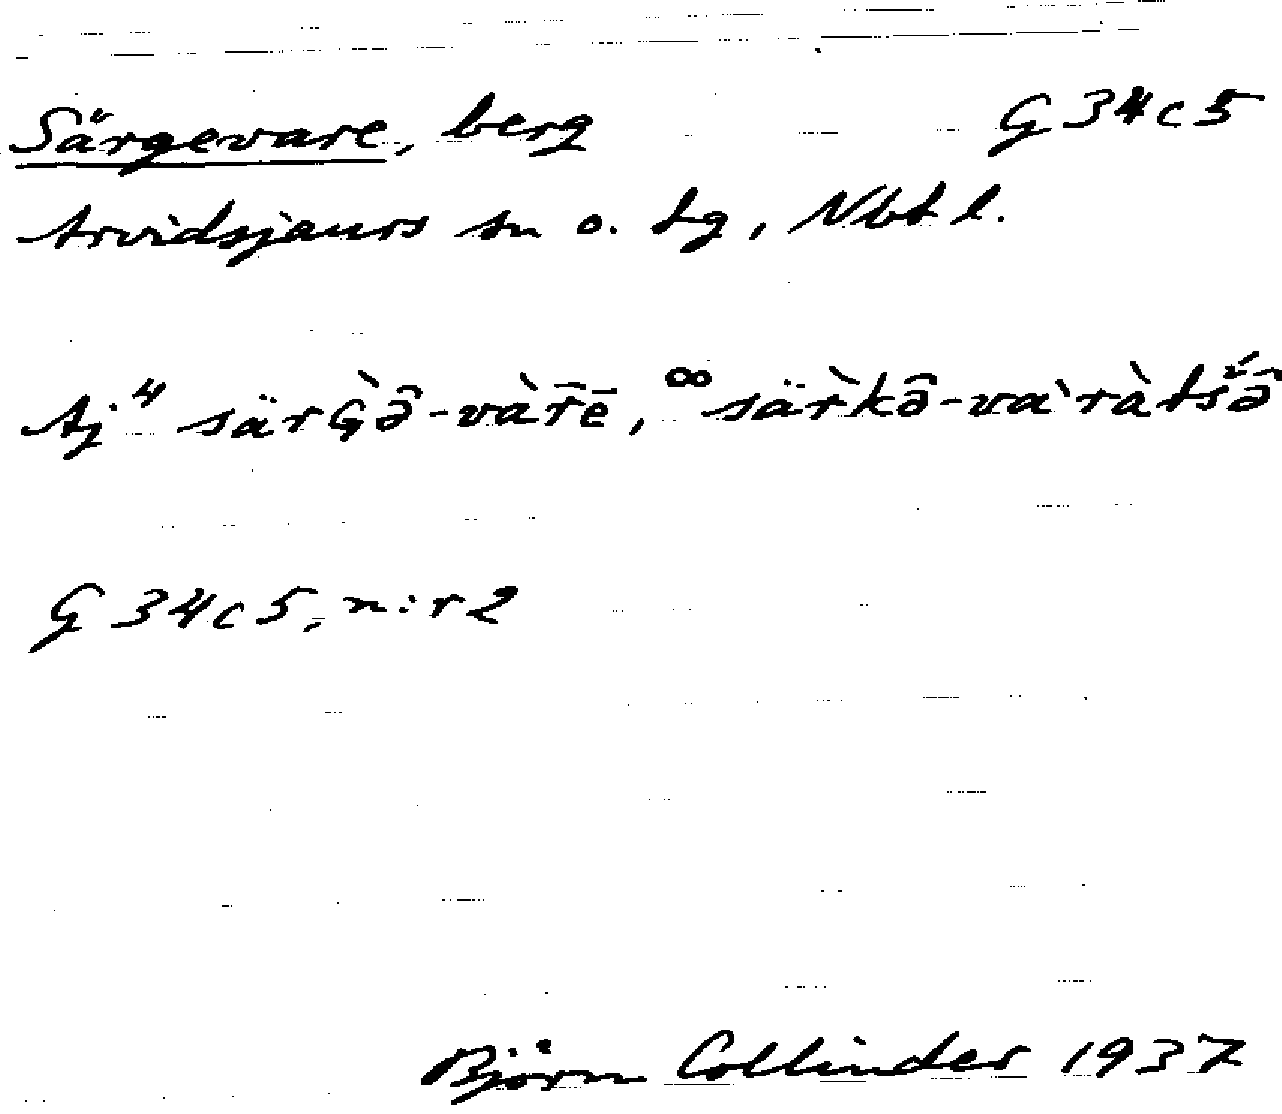 Särgevare, berg G 34 c 5
Arvidsjaurs sn o. tg, Nbt l.
Aj⁴ särG̀ə̑-vàr̄ē, ∞ särkə̑-vàràtšə̑
G 34 c 5, n:r 2
Björn Collinder 1937